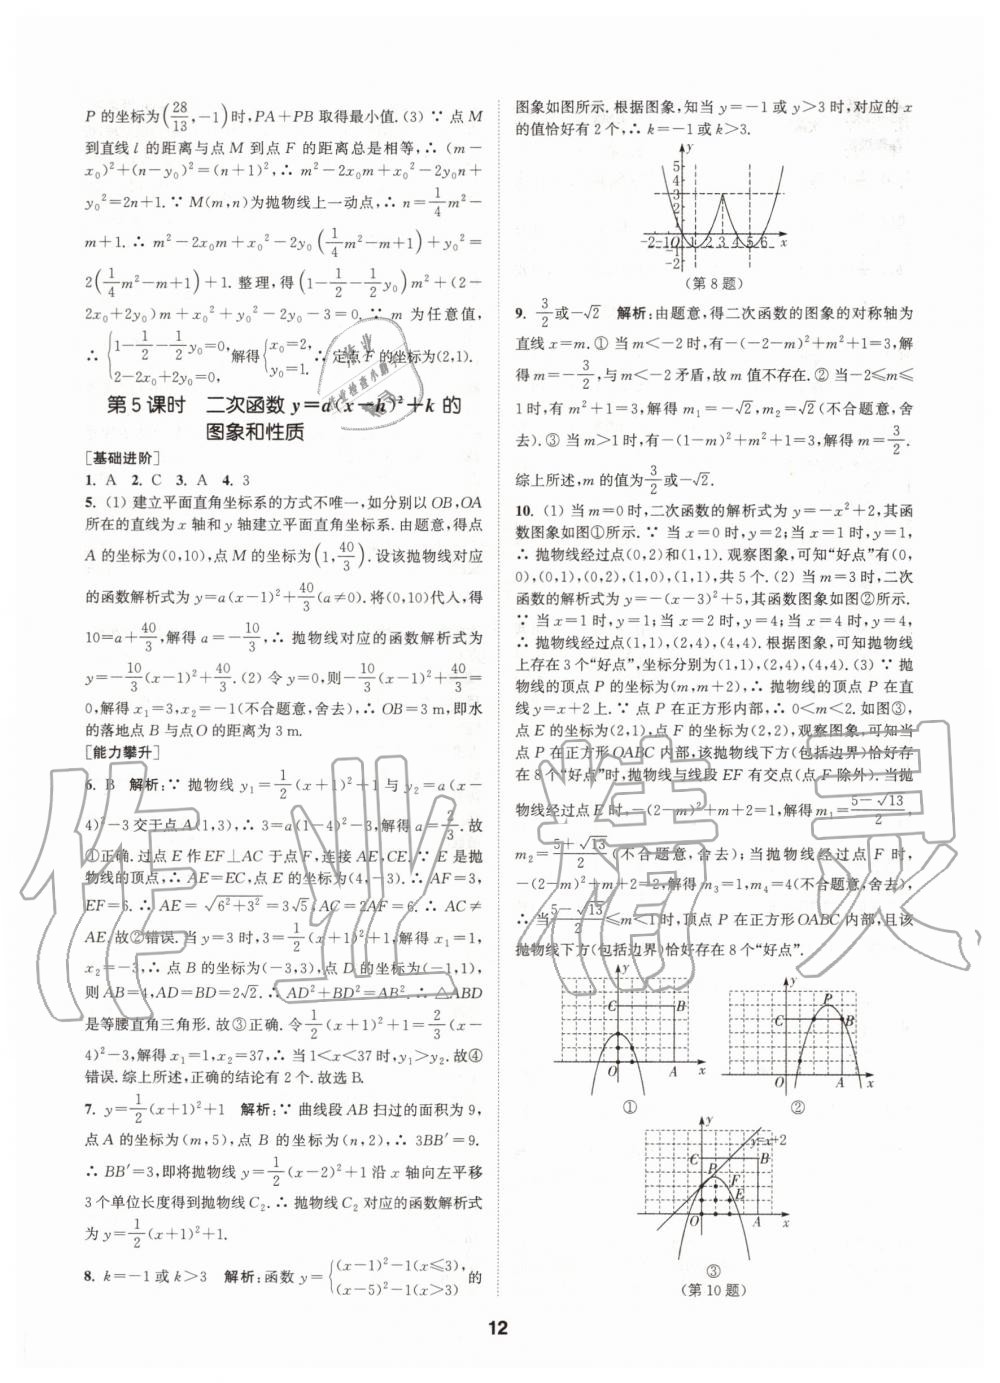 P 的坐标为(28/13,-1)时,PA+PB 取得最小值.(3) ∵ 点 M
到直线 l 的距离与点 M 到点 F 的距离总是相等,∴ (m-
x₀)²+(n-y₀)²=(n+1)²,∴ m²-2x₀m+x₀²-2y₀n+
y₀²=2n+1.∵ M(m,n)为抛物线上一动点,∴ n=1/4m²-
m+1.∴ m²-2x₀m+x₀²-2y₀(1/4m²-m+1)+y₀²=
2(1/4m²-m+1)+1.整理,得(1-1/2-1/2y₀)m²+(2-
2x₀+2y₀)m+x₀²+y₀²-2y₀-3=0.∵ m 为任意值,
∴ {1-1/2-1/2y₀=0, 2-2x₀+2y₀=0, 解得{x₀=2, y₀=1. ∴ 定点 F 的坐标为(2,1).
第 5 课时 二次函数 y=a(x-h)²+k 的
图象和性质
[基础进阶]
1. A 2. C 3. A 4. 3
5. (1) 建立平面直角坐标系的方式不唯一,如分别以 OB,OA
所在的直线为 x 轴和 y 轴建立平面直角坐标系.由题意,得点
A 的坐标为(0,10),点 M 的坐标为(1,40/3).设该抛物线对应
的函数解析式为 y=a(x-1)²+40/3(a≠0).将(0,10)代入,得
10=a+40/3,解得 a=-10/3,∴ 抛物线对应的函数解析式为
y=-10/3(x-1)²+40/3.(2) 令 y=0,则-10/3(x-1)²+40/3=
0,解得 x₁=3,x₂=-1(不合题意,舍去),∴ OB=3 m,即水
的落地点 B 与点O 的距离为 3 m.
[能力攀升]
6. B 解析:∵ 抛物线 y₁=1/2(x+1)²+1 与 y₂=a(x-
4)²-3 交于点 A(1,3),∴ 3=a(1-4)²-3,解得 a=2/3.故
①正确.过点 E 作EF⊥AC 于点 F,连接 AE,CE.∵ E 是抛
物线的顶点,∴ AE=EC,点 E 的坐标为(4,-3).∴ AF=3,
EF=6.∴ AE=√6²+3²=3√5,AC=2AF=6.∴ AC≠
AE.故②错误.当 y=3 时,3=1/2(x+1)²+1,解得 x₁=1,
x₂=-3,∴ 点 B 的坐标为(-3,3),点 D 的坐标为(-1,1),
则 AB=4,AD=BD=2√2.∴ AD²+BD²=AB².∴ △ABD
是等腰直角三角形.故③正确.令1/2(x+1)²+1=2/3(x-
4)²-3,解得 x₁=1,x₂=37,∴ 当 1<x<37 时,y₁>y₂.故④
错误.综上所述,正确的结论有 2 个.故选 B.
7. y=1/2(x+1)²+1 解析:∵ 曲线段 AB 扫过的面积为 9,
点 A 的坐标为(m,5),点 B 的坐标为(n,2),∴ 3BB′=9.
∴ BB′=3,即将抛物线 y=1/2(x-2)²+1 沿 x 轴向左平移
3 个单位长度得到抛物线 C₂.∴ 抛物线 C₂ 对应的函数解析式
为 y=1/2(x+1)²+1.
8. k=-1 或 k>3 解析:函数 y={(x-1)²-1(x≤3), (x-5)²-1(x>3) 的
图象如图所示.根据图象,知当 y=-1 或 y>3 时,对应的 x
的值恰好有 2 个,∴ k=-1 或 k>3.
y
5
4
3
2
1
-2 -1 O 1 2 3 4 5 6 x
-1
-2
(第 8 题)
9. 3/2或-√2 解析:由题意,得二次函数的图象的对称轴为
直线 x=m.① 当 m<-2 时,有-(-2-m)²+m²+1=3,解
得 m=-3/2,与 m<-2 矛盾,故 m 值不存在.② 当-2≤m≤
1 时,有 m²+1=3,解得 m₁=-√2,m₂=√2(不合题意,舍
去).③ 当 m>1 时,有-(1-m)²+m²+1=3,解得 m=3/2.
综上所述,m 的值为3/2或-√2.
10. (1) 当 m=0 时,二次函数的解析式为 y=-x²+2,其函
数图象如图①所示.∵ 当 x=0 时,y=2;当 x=1 时,y=1,
∴ 抛物线经过点(0,2)和(1,1).观察图象,可知“好点”有(0,
0),(0,1),(0,2),(1,0),(1,1),共 5 个.(2) 当 m=3 时,二次
函数的解析式为 y=-(x-3)²+5,其函数图象如图②所示.
∵ 当 x=1 时,y=1;当 x=2 时,y=4;当 x=4 时,y=4,
∴ 抛物线经过点(1,1),(2,4),(4,4).根据图象,可知抛物线
上存在 3 个“好点”,坐标分别为(1,1),(2,4),(4,4).(3) ∵ 抛
物线的顶点 P 的坐标为(m,m+2),∴ 抛物线的顶点 P 在直
线 y=x+2 上.∵ 点 P 在正方形内部,∴ 0<m<2.如图③,
点 E 的坐标为(2,1),点 F 的坐标为(2,2),观察图象,可知当
点 P 在正方形OABC 内部,该抛物线下方(包括边界)恰好存
在 8 个“好点”时,抛物线与线段 EF 有交点(点 F 除外).当抛
物线经过点 E 时,-(2-m)²+m+2=1,解得 m₁=5-√13/2,
m₂=5+√13/2(不合题意,舍去);当抛物线经过点 F 时,
-(2-m)²+m+2=2,解得 m₃=1,m₄=4(不合题意,舍去).
∴ 当5-√13/2≤m<1 时,顶点 P 在正方形OABC 内部,且该
抛物线下方(包括边界)恰好存在 8 个“好点”.
y
C B
O A x
①
y
P
C B
O A x
②
y
y=x+2
C P B
F
E
O A x
③
(第 10 题)
12
作业精灵